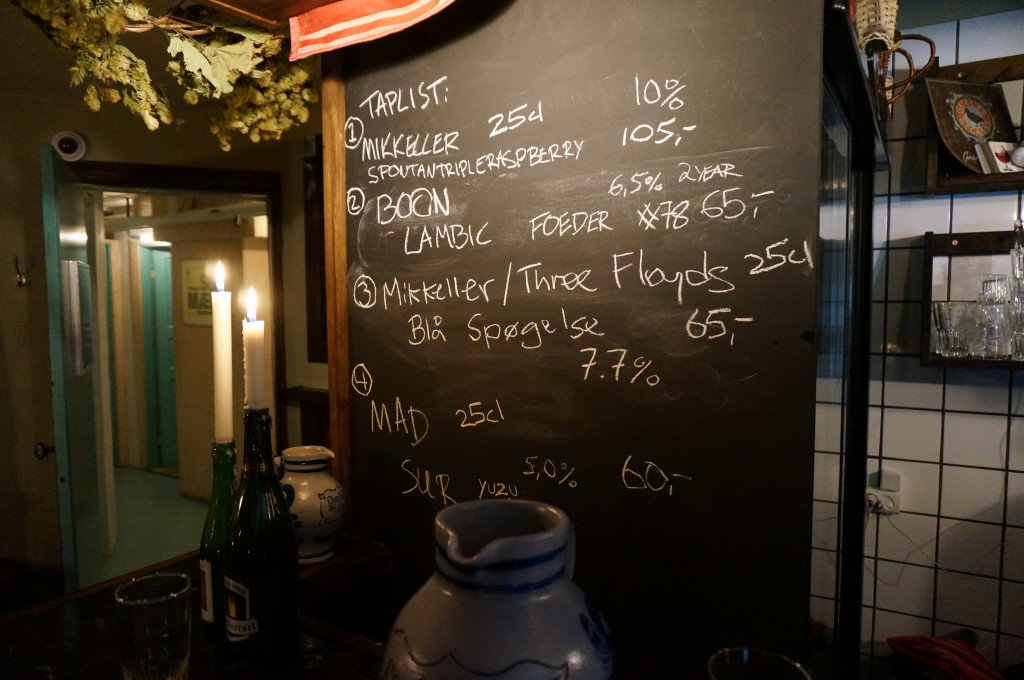 TAPLIST:
① MIKKELLER 25cl 10%
SPONTANTRIPLERASPBERRY 105,-
② BOON 6,5% 2 YEAR
LAMBIC FOEDER #78 65,-
③ Mikkeller/Three Floyds 25cl
Blå Spøgelse 65,-
7.7%
④
MAD 25cl
SUR YUZU 5,0% 60,-